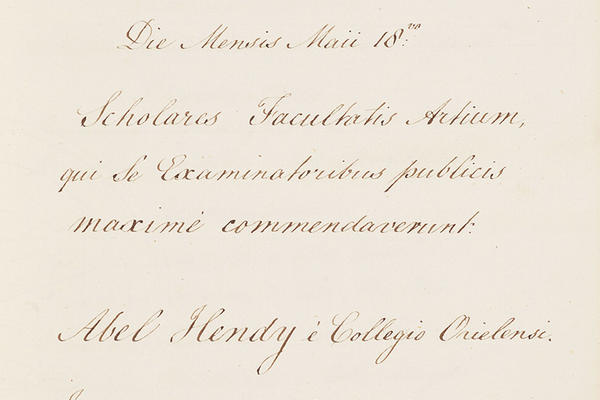 Die Mensis Maii 18.vo
Scholares Facultatis Artium,
qui se Examinatoribus publicis
maximè commendaverunt.
Abel Hendy è Collegio Orielensi.